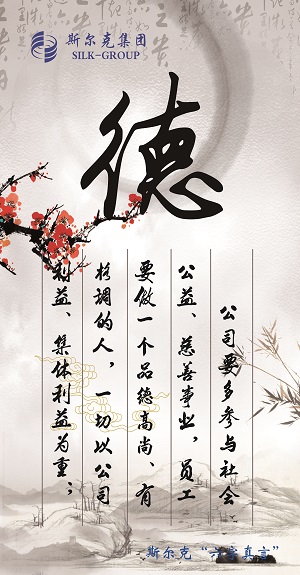 斯尔克集团
SILK-GROUP
德
公司要多参与社会
公益、慈善事业，员工
要做一个品德高尚、有
格调的人，一切以公司
利益、集体利益为重；
斯尔克“六字真言”